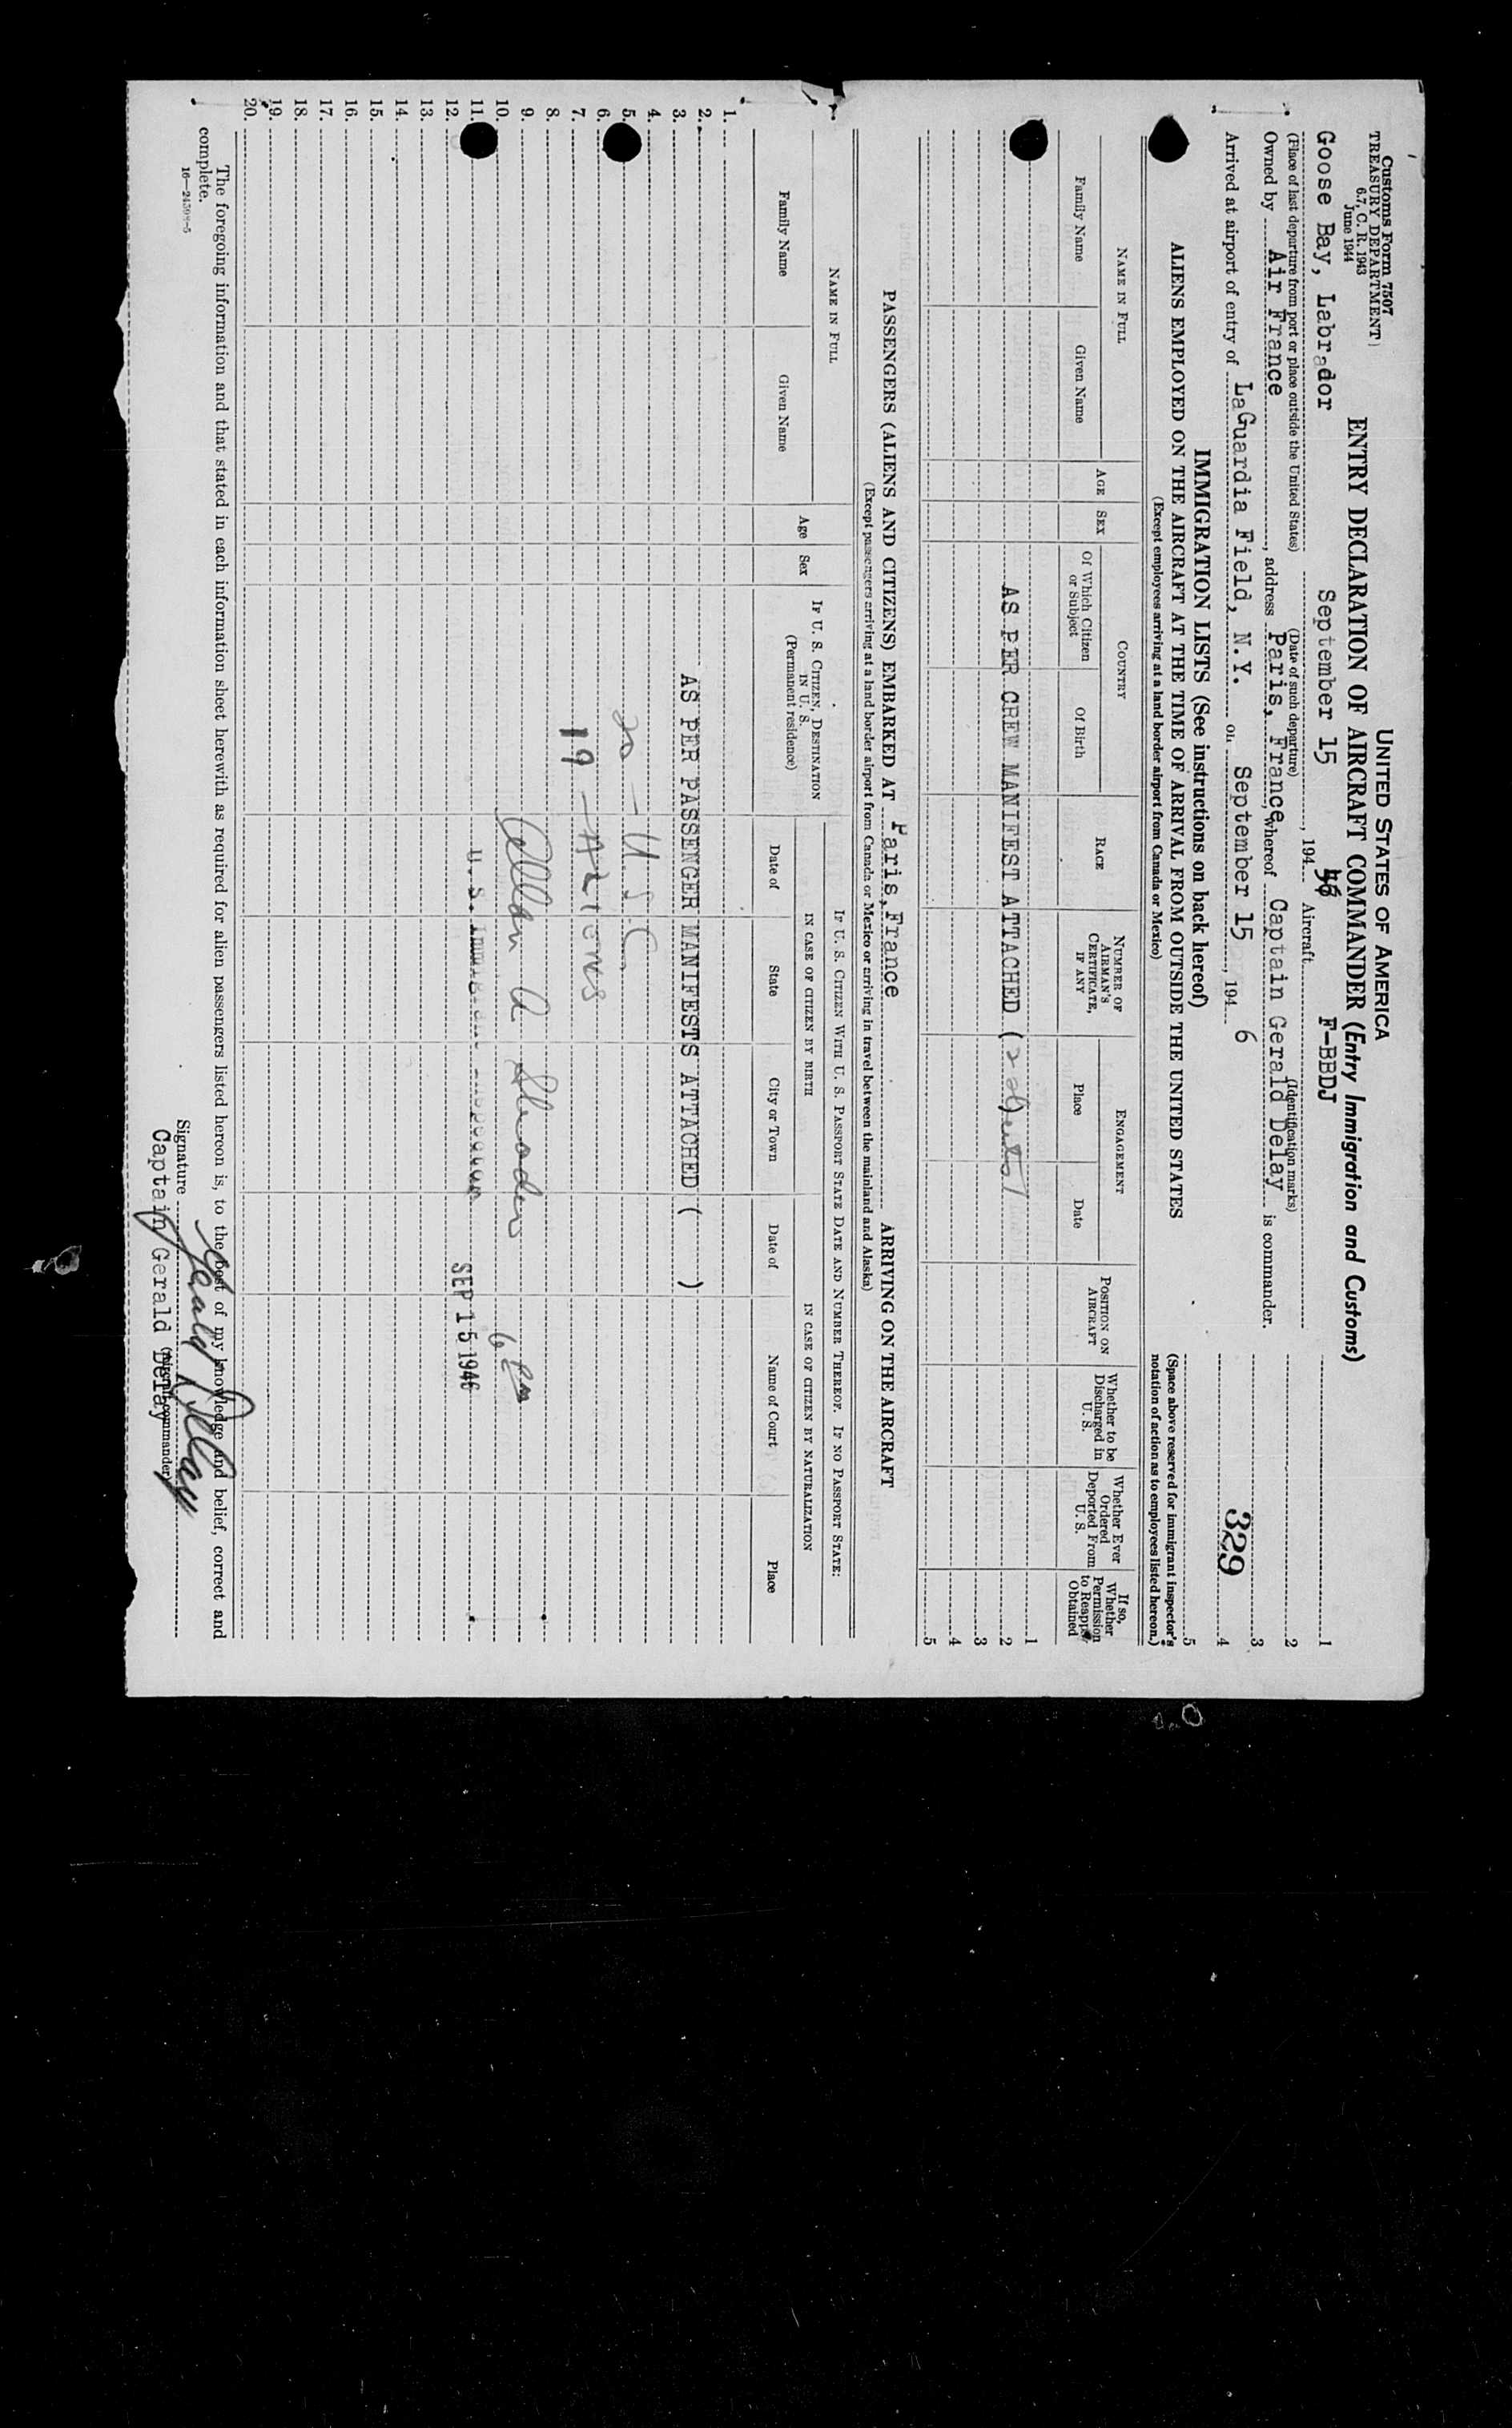 Customs Form 7507
TREASURY DEPARTMENT
6.7, C. R. 1943
June 1944
UNITED STATES OF AMERICA
ENTRY DECLARATION OF AIRCRAFT COMMANDER (Entry Immigration and Customs)
Goose Bay, Labrador September 15, 194 Aircraft F-BBDJ
(Place of last departure from port or place outside the United States) (Date of such departure) (Identification marks)
Owned by Air France, address Paris, France, whereof Captain Gerald Delay is commander.
Arrived at airport of entry of LaGuardia Field, N.Y. on September 15, 194 6
1
2
3
329
4
5
IMMIGRATION LISTS (See instructions on back hereof)
(Space above reserved for immigrant inspector's notation of action as to employees listed hereon.)
ALIENS EMPLOYED ON THE AIRCRAFT AT THE TIME OF ARRIVAL FROM OUTSIDE THE UNITED STATES
(Except employees arriving at a land border airport from Canada or Mexico)
NAME IN FULL
Family Name
Given Name
AGE
SEX
COUNTRY
Of Which Citizen or Subject
Of Birth
RACE
NUMBER OF AIRMAN'S CERTIFICATE, IF ANY
ENGAGEMENT
Place
Date
POSITION ON AIRCRAFT
Whether to be Discharged in U. S.
Whether Ever Ordered Deported From U. S.
If so, Whether Permission to Reapply Obtained
1
AS PER CREW MANIFEST ATTACHED (
2
3
4
5
PASSENGERS (ALIENS AND CITIZENS) EMBARKED AT Paris, France ARRIVING ON THE AIRCRAFT
(Except passengers arriving at a land border airport from Canada or Mexico or arriving in travel between the mainland and Alaska)
NAME IN FULL
Family Name
Given Name
Age
Sex
IF U. S. CITIZEN, DESTINATION IN U. S.
(Permanent residence)
IF U. S. CITIZEN WITH U. S. PASSPORT STATE DATE AND NUMBER THEREOF. IF NO PASSPORT STATE:
IN CASE OF CITIZEN BY BIRTH
Date of
State
City or Town
IN CASE OF CITIZEN BY NATURALIZATION
Date of
Name of Court
Place
1.
2.
3. AS PER PASSENGER MANIFESTS ATTACHED ( )
4.
5. 20 - U.S.C.
6.
7. 19 - Aliens
8.
9.
10.
11. U. S. Immigrant Inspector
12. SEP 15 1946
13.
14.
15.
16.
17.
18.
19.
20.
The foregoing information and that stated in each information sheet herewith as required for alien passengers listed hereon is, to the best of my knowledge and belief, correct and
complete.
Signature Gerald Delay
16—24308-5
Captain Gerald Delay
(Aircraft commander)